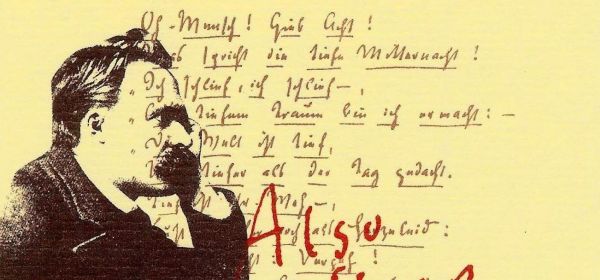 Oh Mensch! Gieb Acht!
spricht die tiefe Mitternacht!
„Ich schlief, ich schlief—,
tiefem Traum bin ich erwacht:—
Welt ist tief,
tiefer als der Tag gedacht.
Weh—,
als Herzeleid:
: Vergeh!
Also